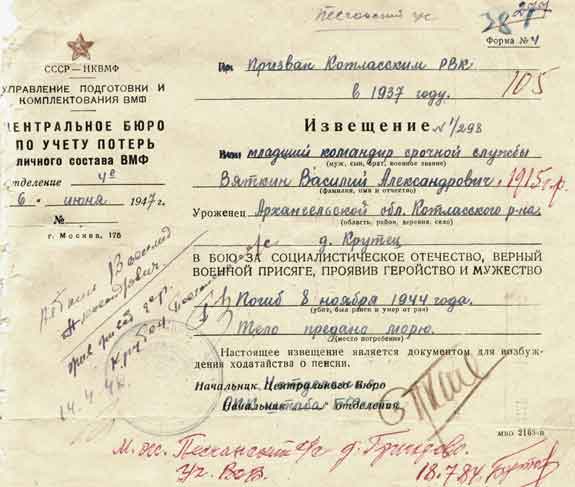 277
Форма № 4
СССР—НКВМФ
УПРАВЛЕНИЕ ПОДГОТОВКИ И
КОМПЛЕКТОВАНИЯ ВМФ
ЦЕНТРАЛЬНОЕ БЮРО
ПО УЧЕТУ ПОТЕРЬ
личного состава ВМФ
Отделение 4е
6 июня 1947 г.
№
г. Москва, 175
Призван Котласским РВК
в 1937 году.
105
Извещение № 1/298
младший командир срочной службы
(муж, сын, брат, военное звание)
Вяткин Василий Александрович 1915 г.р.
(фамилия, имя и отчество)
Уроженец Архангельской обл. Котласского р-на
(область, район, деревня, село)
с/с д. Крутец
В БОЮ ЗА СОЦИАЛИСТИЧЕСКОЕ ОТЕЧЕСТВО, ВЕРНЫЙ
ВОЕННОЙ ПРИСЯГЕ, ПРОЯВИВ ГЕРОЙСТВО И МУЖЕСТВО
Погиб 8 ноября 1944 года.
(убит, был ранен и умер от ран)
Тело предано морю.
(место погребения)
Настоящее извещение является документом для возбуж-
дения ходатайства о пенсии.
Начальник Центрального Бюро
Начальник отделения
МВО 2168-в
М. ж. Песчанский с/с д.
Уч. ВОВ. 18.7.84.